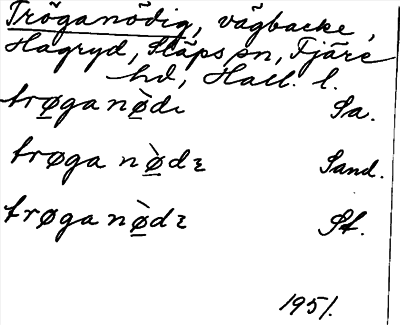 Tröganödig, vägbacke,
Hagryd, Släps sn, Fjäre
hd, Hall. l.
trøga nø̀dı Sa.
trøga nø̀dɛ Sand.
trøga nø̀dɛ St.
1951.